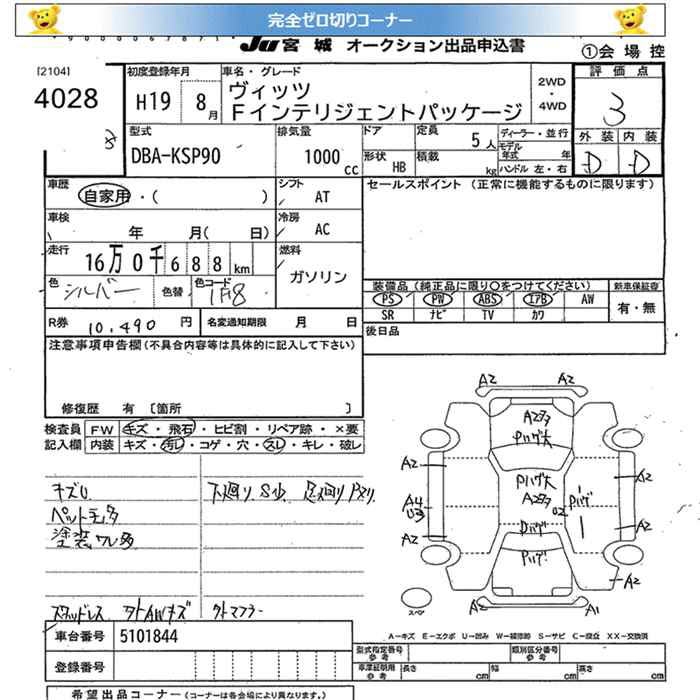 完全ゼロ切りコーナー
JU 宮城 オークション出品申込書
①会場控
[2104]
4028
初度登録年月
H19 8月
車名・グレード
ヴィッツ
Fインテリジェントパッケージ
2WD・4WD
評価点
3
外装 内装
D D
型式
DBA-KSP90
排気量
1000cc
ドア
形状 HB
定員 5人
積載 kg
ディーラー・並行
モデル年式 年
ハンドル 左・右
車歴
自家用・( )
シフト AT
車検 年 月( 日)
冷房 AC
走行 16万0千688km
燃料 ガソリン
色 シルバー
色替
色コード 1F8
R券 10,490 円
名変通知期限 月 日
セールスポイント (正常に機能するものに限ります)
装備品 (純正品に限り○をつけてください)
新車保証書
PS PW ABS エアB AW
SR ナビ TV カワ
有・無
後日品
注意事項申告欄(不具合内容等は具体的に記入して下さい)
修復歴 有 〔箇所 〕
検査員記入欄
FW キズ・飛石・ヒビ割・リペア跡・×要
内装 キズ・汚レ・コゲ・穴・スレ・キレ・破レ
下廻り、S少
ペット毛多
塗装ワレ多
スタッドレス
外マフラー
A2 A2
A2多
Pハゲ大
A2 A2
Pハゲ大
A2多
Pハゲ
A4
U3
A2 A2
Pハゲ
A2
A2 A1
スペア
A-キズ E-エクボ U-凹み W-補修跡 S-サビ C-腐食 XX-交換済
車台番号 5101844
登録番号
型式指定番号 参考
類別区分番号 参考
車庫証明用 参考
長さ cm 幅 cm 高さ cm
希望出品コーナー (コーナーは各会場により異なります。)